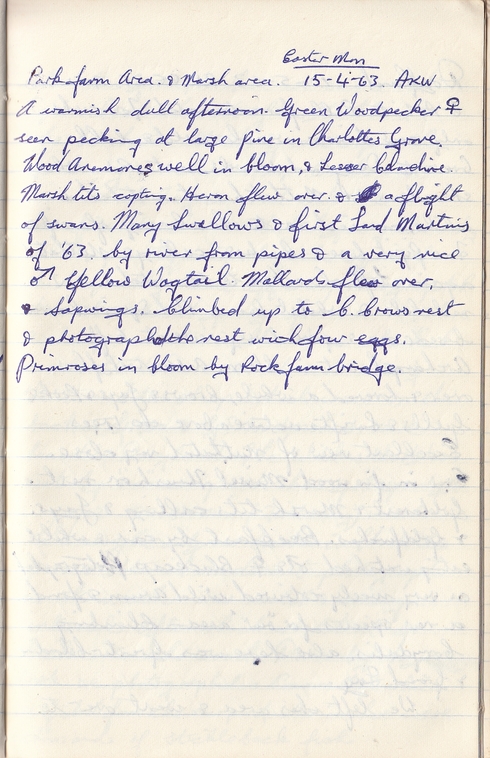 Easter Mon
Park farm Area. & Marsh area. 15-4-63. AKW
A warmish dull afternoon. Green Woodpecker ♀
seen pecking at large pine in Charlottes Grove.
Wood Anemones well in bloom, & Lesser Celandine.
Marsh tits Heron flew over. & a flight
of swans. Many Swallows & first Sand Martins
of '63. by river from pipes & a very nice
♂ Yellow Wagtail. Mallards flew over.
& Lapwings. Climbed up to C. Crows nest
& photographed the nest with four eggs.
Primroses in bloom by Rock farm bridge.